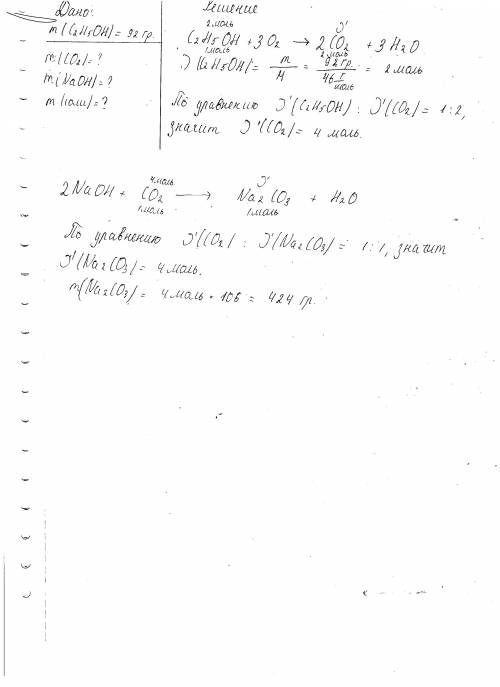 Дано:
m(C2H5OH) = 92 гр.
m(CO2) = ?
m(NaOH) = ?
m(соли) = ?
Решение
2 моль J'
C2H5OH + 3O2 → 2CO2 + 3H2O
1 моль 2 моль
J'(C2H5OH) = m/M = 92 гр. / 46 г/моль = 2 моль
По уравнению J'(C2H5OH) : J'(CO2) = 1:2,
значит J'(CO2) = 4 моль.
4 моль J'
2NaOH + CO2 → Na2CO3 + H2O
1 моль 1 моль
По уравнению J'(CO2) : J'(Na2CO3) = 1:1, значит
J'(Na2CO3) = 4 моль.
m(Na2CO3) = 4 моль · 106 = 424 гр.